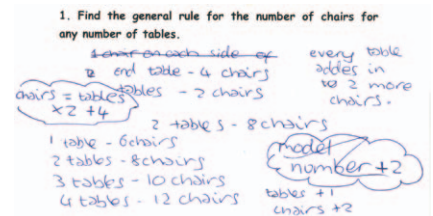 1. Find the general rule for the number of chairs for
any number of tables.
1 chair on each side of
2 end table - 4 chairs
tables - 2 chairs
every table
addes in
to 2 more
chairs.
chairs = tables
×2 +4
2 tables - 8 chairs
1 table - 6 chairs
2 tables - 8 chairs
3 tables - 10 chairs
4 tables - 12 chairs
model
number +2
tables +1
chairs +2